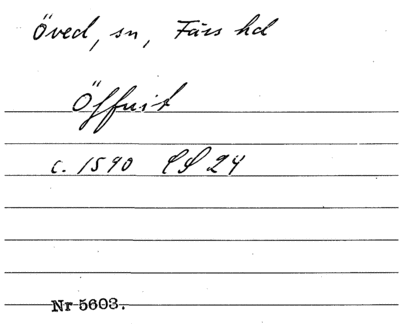 Öved, sn, Färs hd
Öffuit
c. 1590 LS 24
Nr 5603.